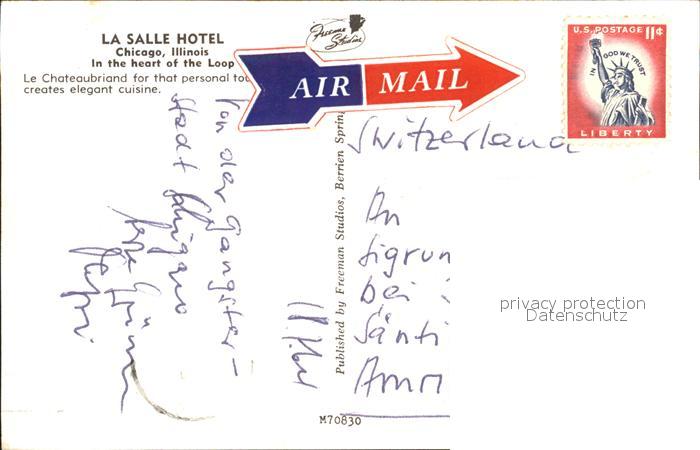 LA SALLE HOTEL
Chicago, Illinois
In the heart of the Loop
Le Chateaubriand for that personal tou
creates elegant cuisine.
Freeman
Studios
AIR MAIL
U.S. POSTAGE 11¢
IN GOD WE TRUST
LIBERTY
Switzerland
Von der Gangster-
stadt
Grüsse
Published by Freeman Studios, Berrien Sprin
An
Sigrun
bei
Sänti
Amri
privacy protection
Datenschutz
M70830